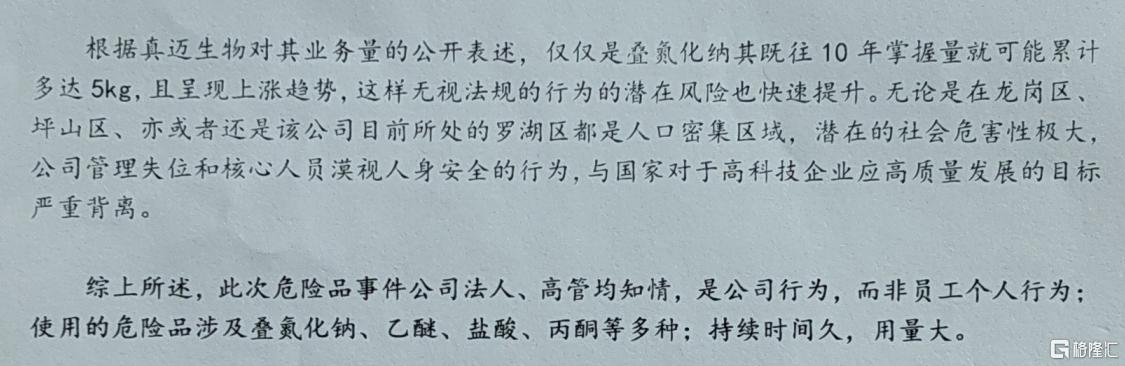 根据真迈生物对其业务量的公开表述，仅仅是叠氮化纳其既往 10 年掌握量就可能累计
多达 5kg，且呈现上涨趋势，这样无视法规的行为的潜在风险也快速提升。无论是在龙岗区、
坪山区、亦或者还是该公司目前所处的罗湖区都是人口密集区域，潜在的社会危害性极大，
公司管理失位和核心人员漠视人身安全的行为，与国家对于高科技企业应高质量发展的目标
严重背离。
综上所述，此次危险品事件公司法人、高管均知情，是公司行为，而非员工个人行为；
使用的危险品涉及叠氮化钠、乙醚、盐酸、丙酮等多种；持续时间久，用量大。
格隆汇